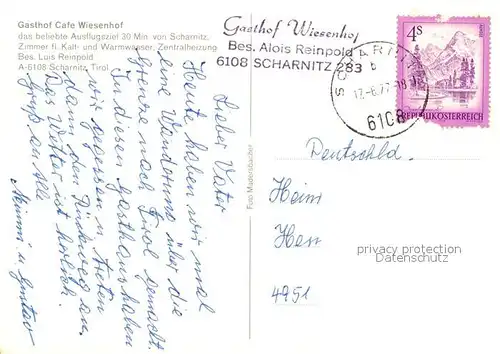 Gasthof Cafe Wiesenhof
das beliebte Ausflugsziel 30 Min. von Scharnitz.
Zimmer fl. Kalt- und Warmwasser, Zentralheizung
Bes. Luis Reinpold
A-6108 Scharnitz, Tirol
Gasthof Wiesenhof
Bes. Alois Reinpold
6108 SCHARNITZ 283
SCHARNITZ
b
17.-6.77-18
6108
4S
REPUBLIK ÖSTERREICH
Lieber Vater
Heute haben wir mal
eine Wanderung über die
Grenze nach Tirol gemacht.
In diesem Gasthaus haben
wir gegessen u. treten
dann den Rückweg an.
Das Wetter ist herrlich.
Gruß an alle
Mimmi u. Gustav
Foto Mugensbacher
Deutschld.
Heim
Herr
4951
privacy protection
Datenschutz